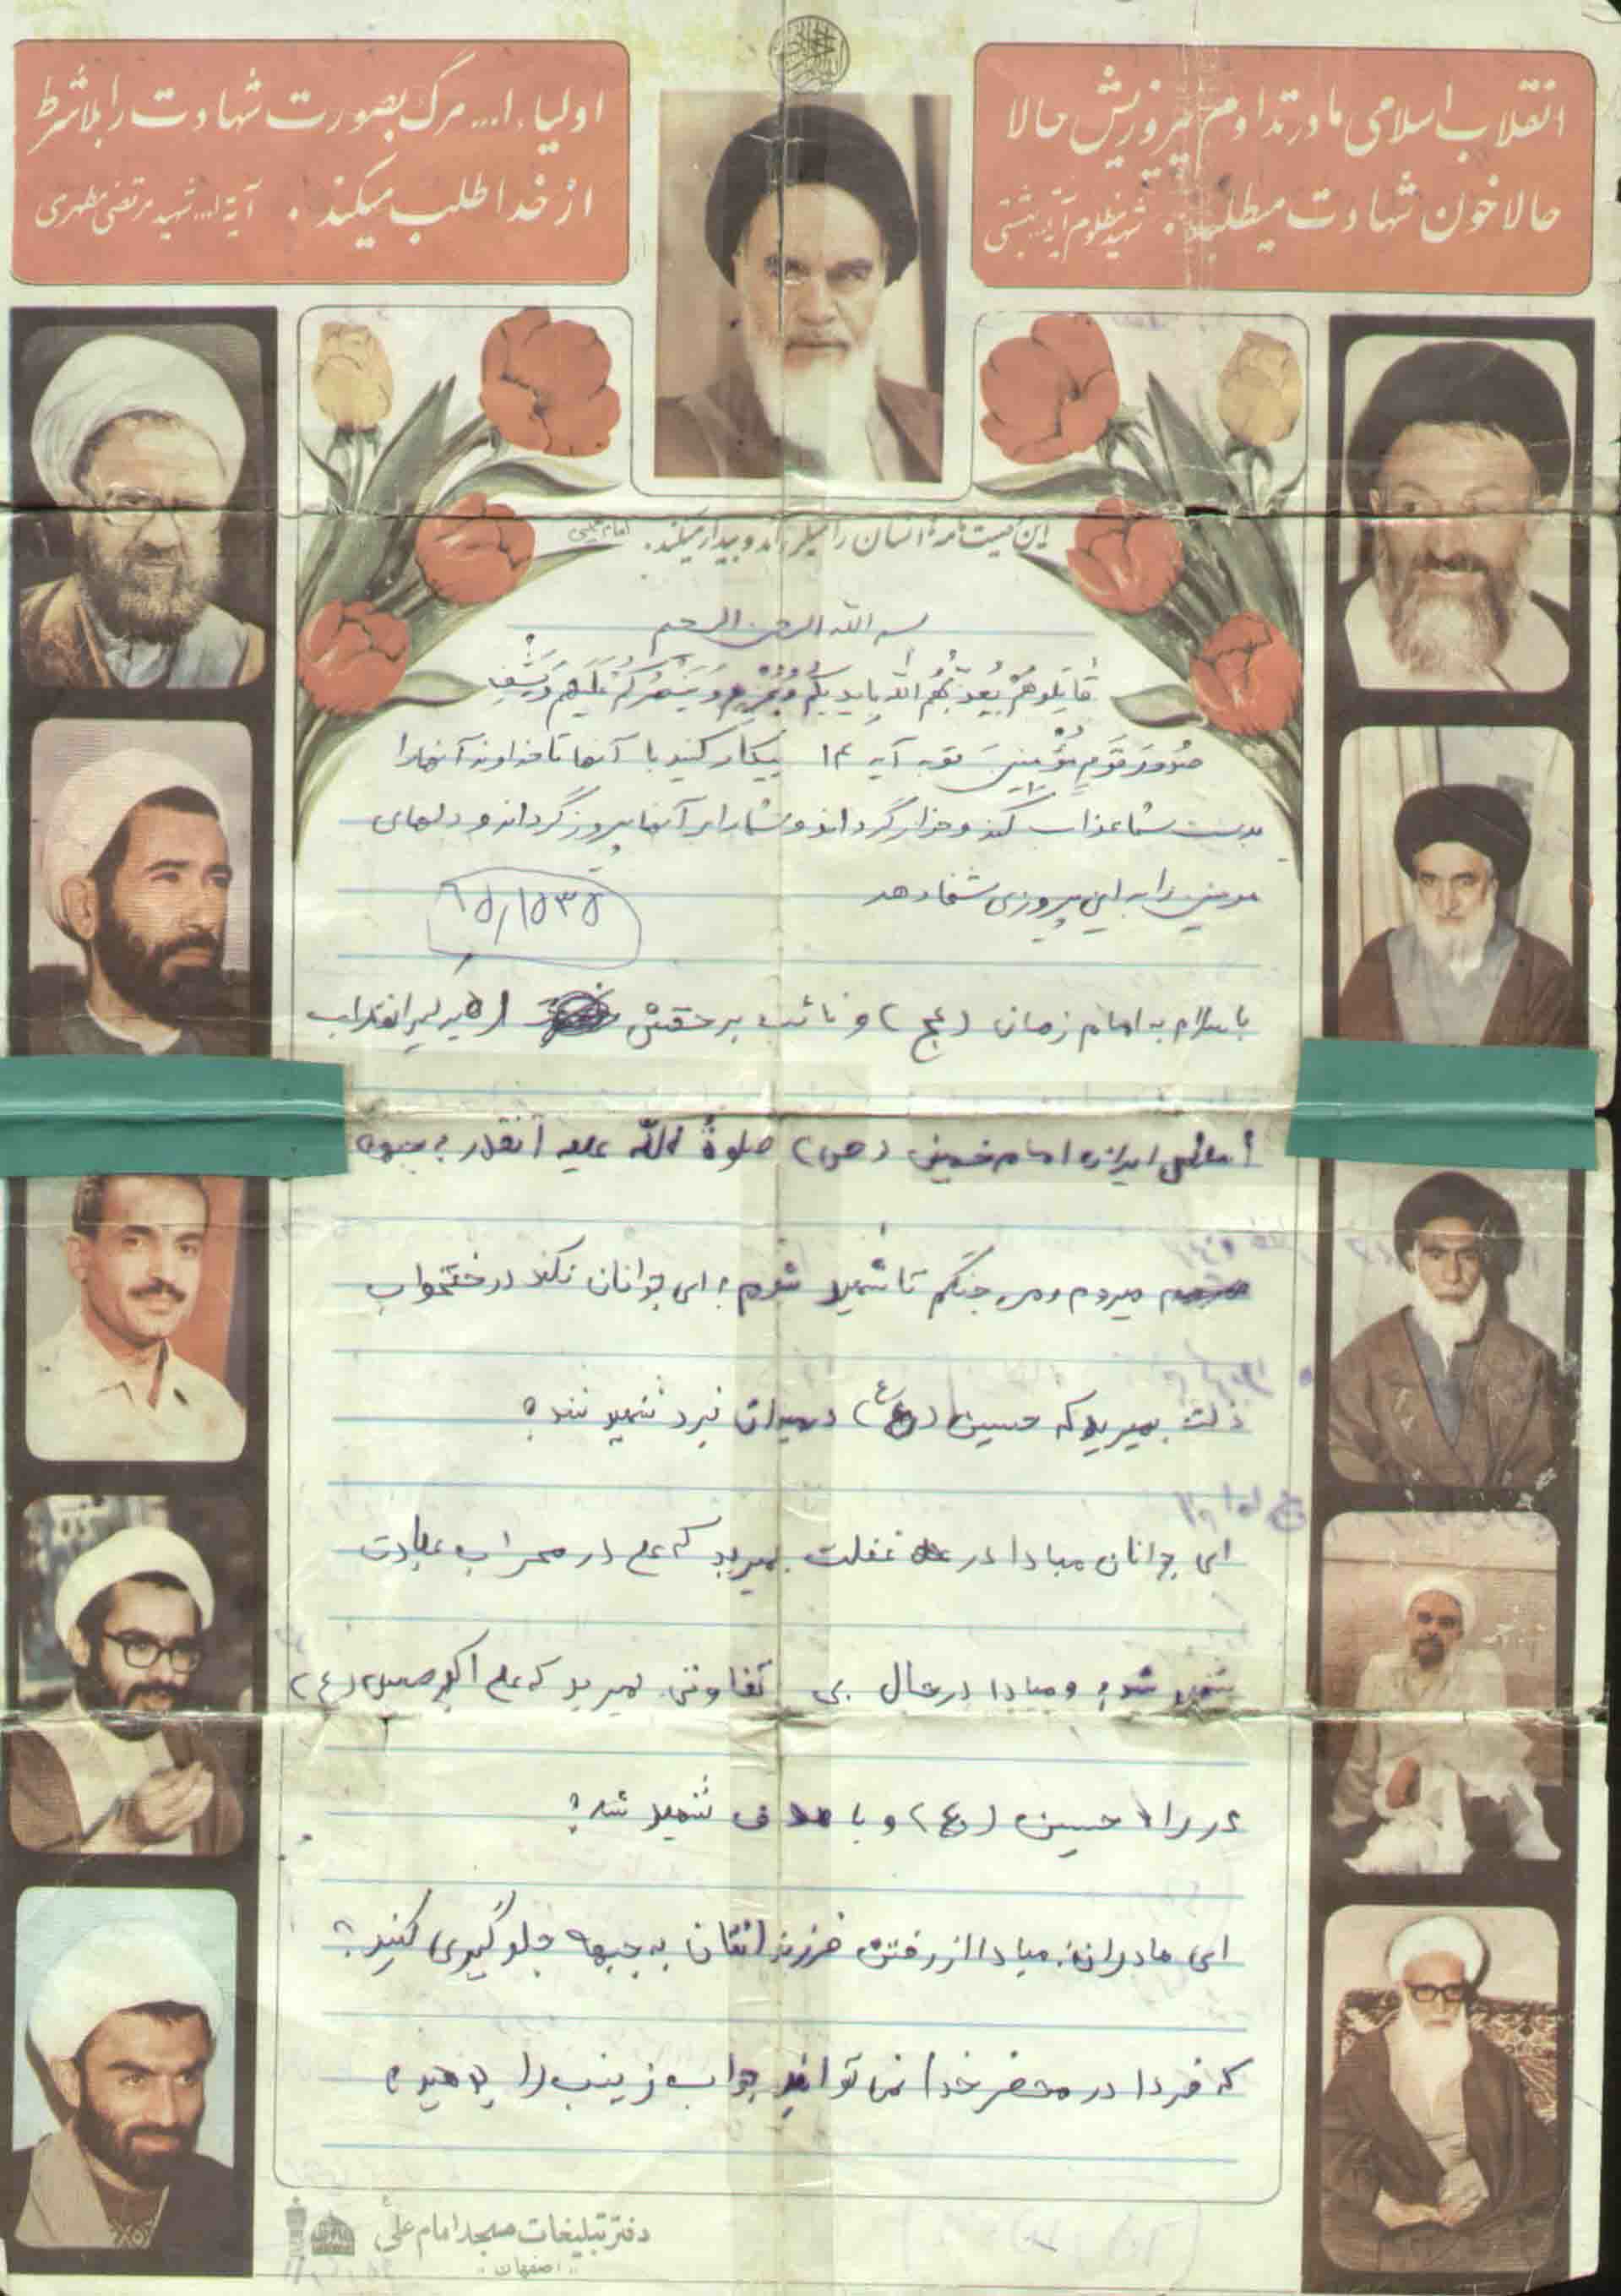 انقلاب اسلامی ما در تداوم پیروزیش حالا
حالا خون شهادت میطلبد. شهید مظلوم آیة... بهشتی
اولیاء ا... مرگ بصورت شهادت را بلاشرط
از خدا طلب میکند. آیة ا... شهید مرتضی مطهری
این وصیت نامه‌ها انسان را میلرزاند و بیدار میکند. امام خمینی
بسم الله الرحمن الرحیم
قَاتِلُوهُمْ يُعَذِّبْهُمُ اللهُ بِأَيْدِيكُمْ وَيُخْزِهِمْ وَيَنْصُرْكُمْ عَلَيْهِمْ وَيَشْفِ
صُدُورَ قَوْمٍ مُؤْمِنِينَ توبه آیه ۱۴ پیکار کنید با آنها تا خداوند آنها را
بدست شما عذاب کند و خوار گرداند و شما را بر آنها پیروز گرداند و دلهای
مومنین را به این پیروزی شفا دهد
۶۵/۱۵۳۵
با سلام به امام زمان (عج) و نائب بر حقش رهبر کبیر انقلاب
اسلامی ایران امام خمینی صلوة الله علیه آنقدر به جبهه
میروم و می جنگم تا شهید شوم، ای جوانان نکند در رختخواب
ذلت بمیرید که حسین (ع) در میدان نبرد شهید شد؟
ای جوانان مبادا در غفلت بمیرید که علی در محراب عبادت
شهید شد، و مبادا در حال بی تفاوتی بمیرید که علی اکبر حسین (ع)
در راه حسین (ع) و با هدف شهید شد؟
ای مادران، مبادا از رفتن فرزندانتان به جبهه جلوگیری کنید؟
که فردا در محضر خدا نمی توانید جواب زینب را بدهید،
دفتر تبلیغات مسجد امام علی
اصفهان